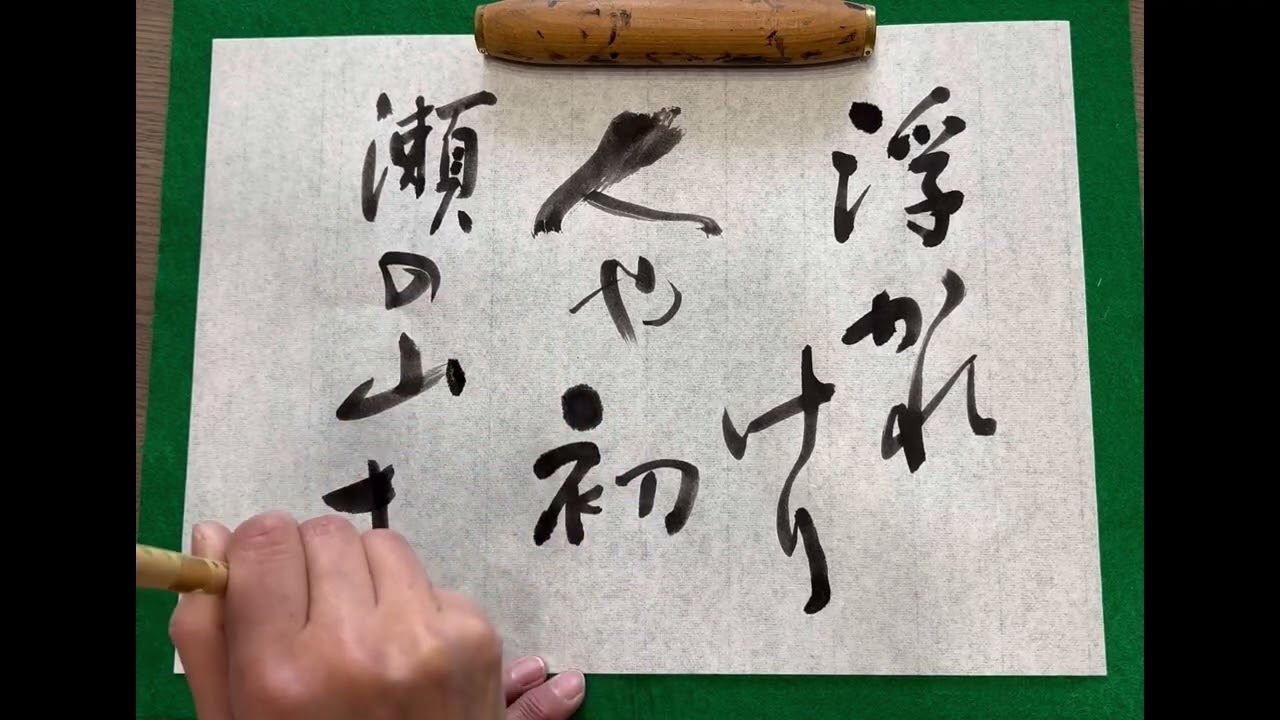 浮かれ
けり
人や初
瀬の山